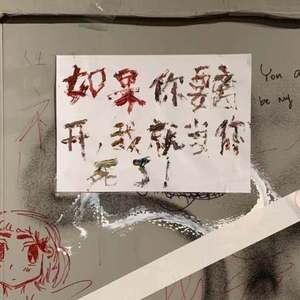 如果你要离
开,我就当你
死了!
You a
be my